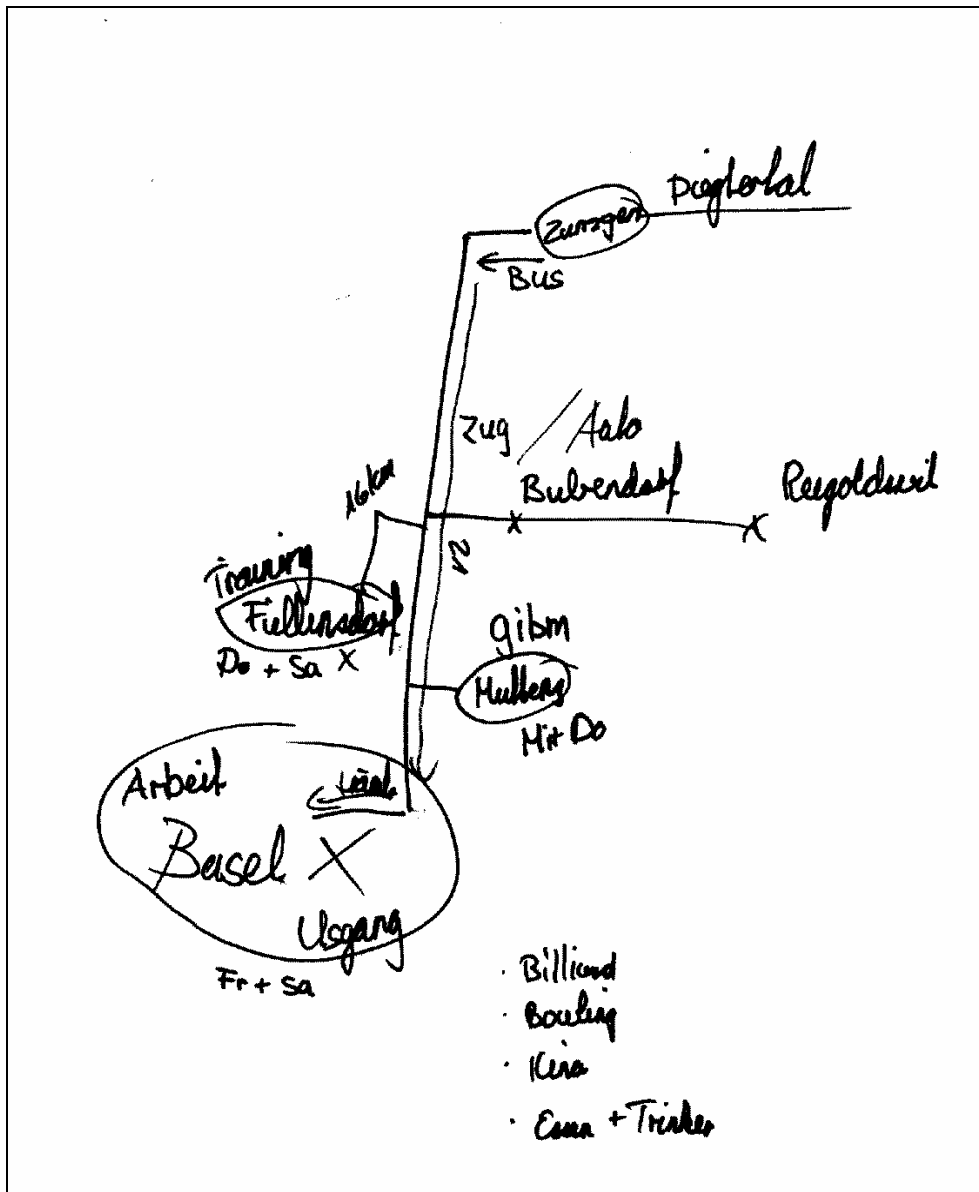 Diegtertal
Zunzgen
Bus
Zug
Bubendorf
Reigoldswil
16km
Training
Füllinsdorf
Do + Sa X
gibm
Muttenz
Mit Do
Arbeit
Basel
Usgang
Fr + Sa
· Billiard
· Bowling
· Kino
· Essen + Trinken